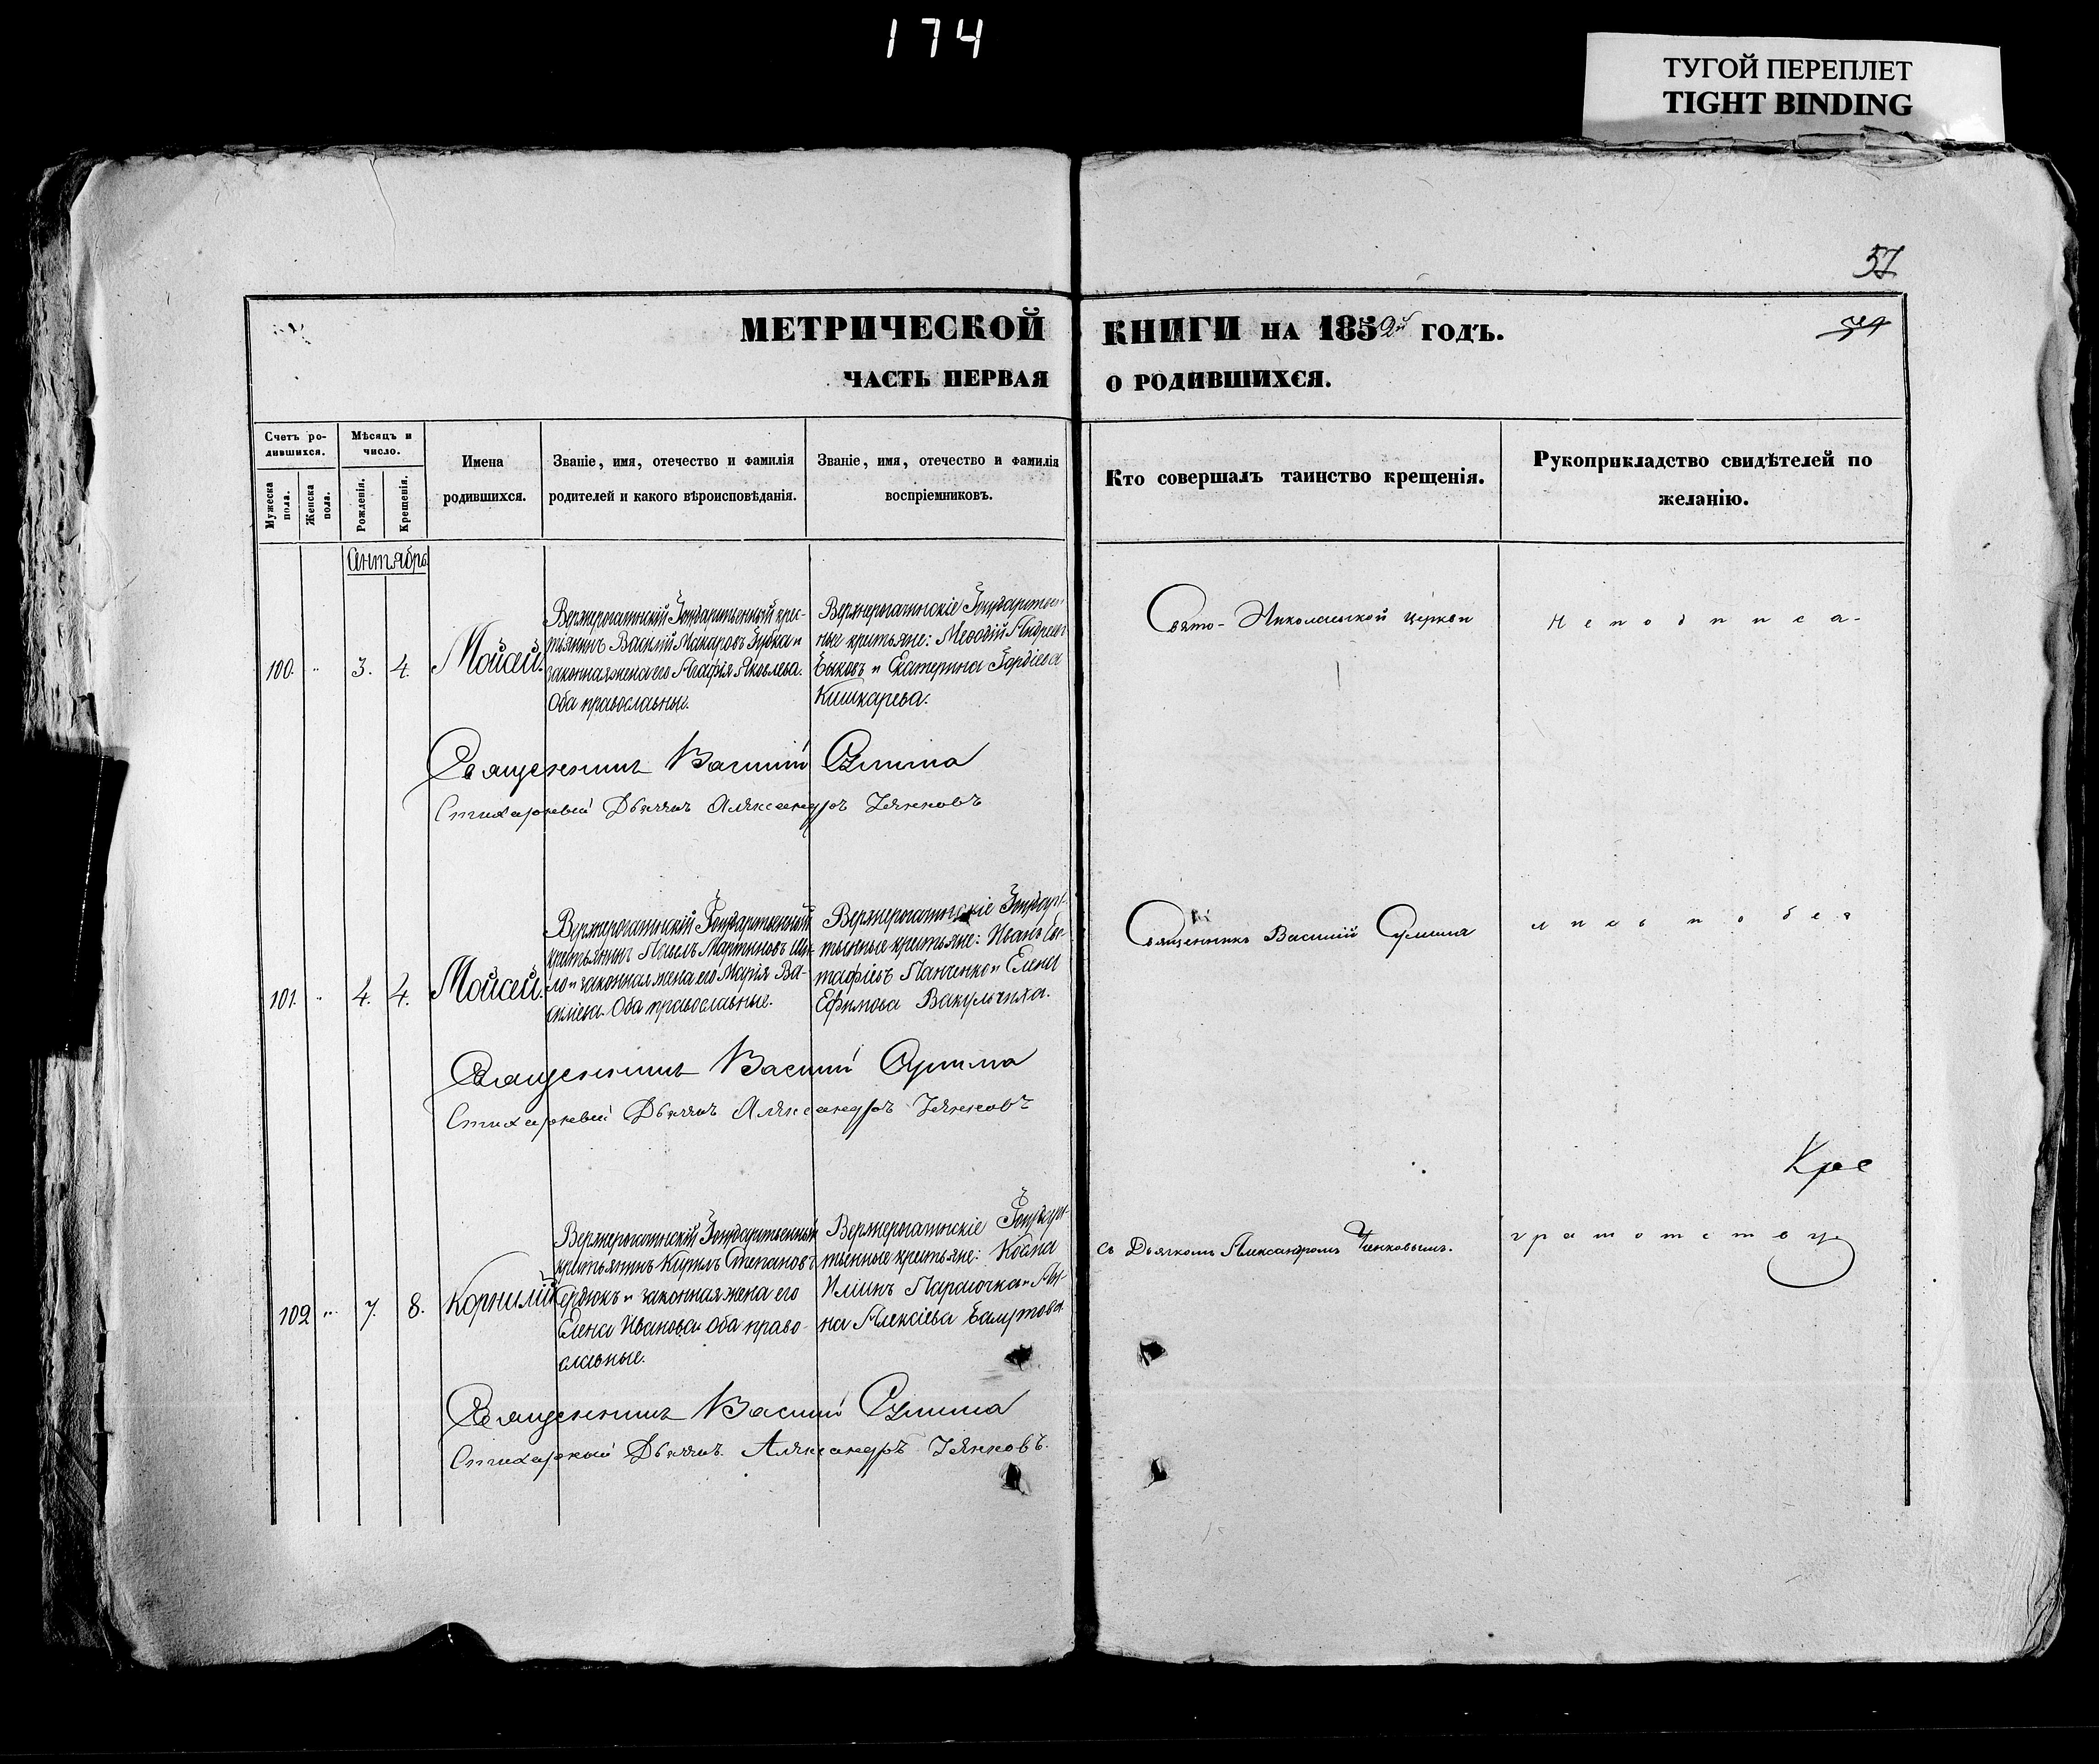 174
ТУГОЙ ПЕРЕПЛЕТ
TIGHT BINDING
57
МЕТРИЧЕСКОЙ КНИГИ НА 1852й ГОДЪ.
ЧАСТЬ ПЕРВАЯ О РОДИВШИХСЯ.
Счетъ ро-
дившихся.
Мужеска
пола.
Женска
пола.
Мѣсяцъ и
число.
Рожденія.
Крещенія.
Имена
родившихся.
Званіе, имя, отечество и фамилія
родителей и какого вѣроисповѣданія.
Званіе, имя, отечество и фамилія
воспріемниковъ.
Кто совершалъ таинство крещенія.
Рукоприкладство свидѣтелей по
желанію.
Сентябрь
100. " 3. 4. Мойсей.
Верхнерогачикскій Государственной крес-
тьянинъ Василій Макаровъ Зубка и
законная жена его Агафія Яковлева.
Оба православные.
Верхнерогачикскіе Государствен-
ные крестьяне: Меѳодій Андреев
Быковъ и Екатерина Гордіева
Кишкарева.
Свято-Николаевской церкви
Неподписа-
Священникъ Василій
Стихарный Дьячекъ Александръ Ченковъ
101. " 4. 4. Мойсей.
Верхнерогачикскій Государственной
крестьянинъ Павелъ Мартиновъ
и законная жена его Марія Ва-
силіева. Оба православные.
Верхнерогачикскіе Государс-
твенные крестьяне: Иванъ Ев-
тафіевъ Панченко и Елена
Ефимова Вакульчиха.
Священникъ Василій Сулима
лись по без
Священникъ Василій Сулима
Стихарный Дьячекъ Александръ Ченковъ
Кре
102 " 7. 8. Корнилій
Верхнерогачикскій Государственный
крестьянинъ Кирилъ Степановъ
Сердюкъ и законная жена его
Елена Иванова. Оба право-
славные.
Верхнерогачикскіе Государс-
твенные крестьяне: Косма
Илиинъ и Ан-
на Алексіева
съ Дьячкомъ Александромъ Ченковымъ.
грамотству
Священникъ Василій Сулима
Стихарный Дьячекъ. Александръ Ченковъ.